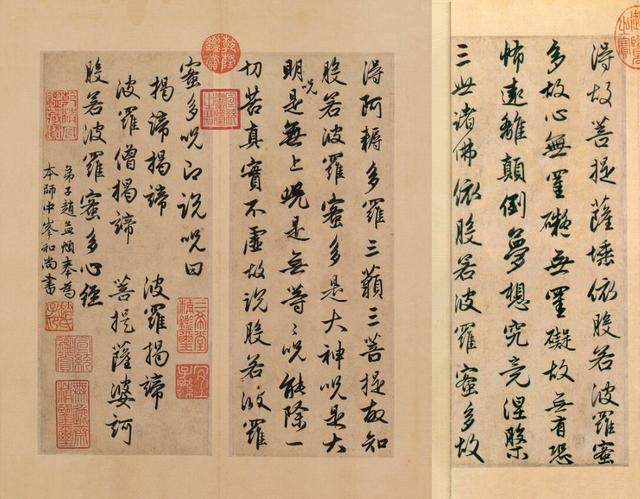 得故菩提薩埵依般若波羅蜜
多故心無罣礙無罣礙故無有恐
怖遠離顛倒夢想究竟涅槃
三世諸佛依般若波羅蜜多故
得阿耨多羅三藐三菩提故知
般若波羅蜜多是大神呪是大
明呪是無上呪是無等〻呪能除一
切苦真實不虛故說般若波羅
蜜多呪即說呪曰
揭諦揭諦 波羅揭諦
波羅僧揭諦 菩提薩婆訶
般若波羅蜜多心經
弟子趙孟頫奉為
本師中峯和尚書
乾隆鑑賞
三希堂精鑑璽
宜子孫